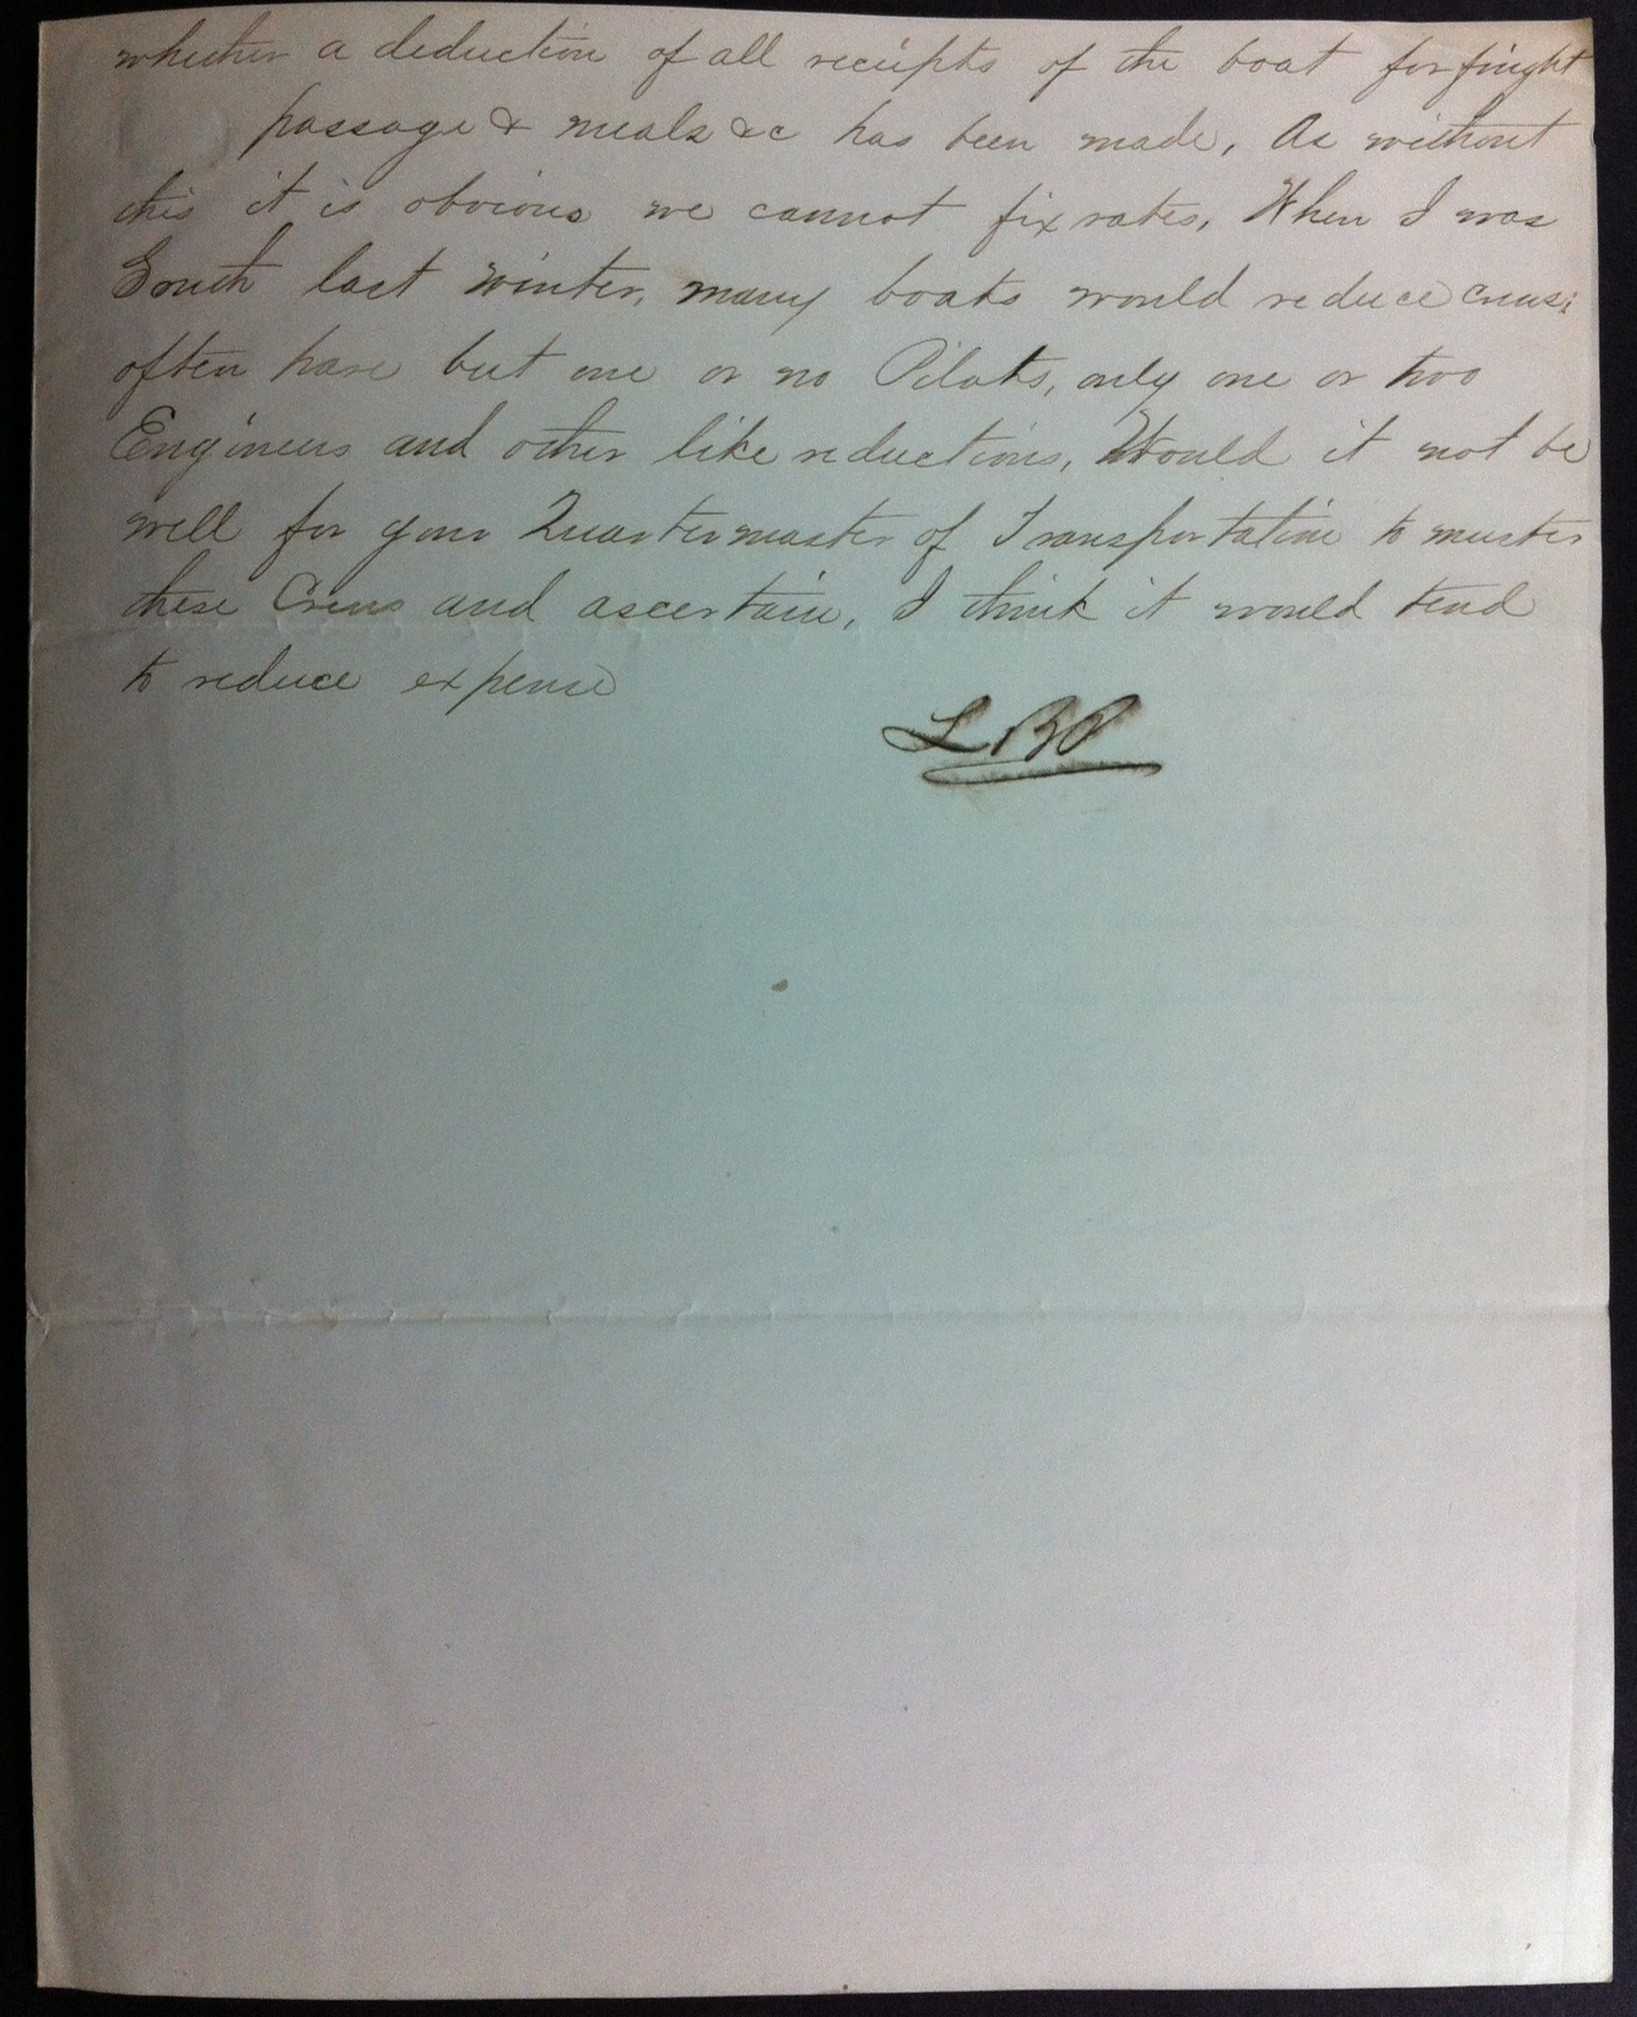 whether a deduction of all receipts of the boat for freight
passage & meals &c has been made, As without
this it is obvious we cannot fix rates, When I was
South last winter, many boats would reduce crews;
often have but one or no Pilots, only one or two
Engineers and other like reductions, Would it not be
well for your Quartermaster of Transportation to muster
these Crews and ascertain, I think it would tend
to reduce expense
LBP